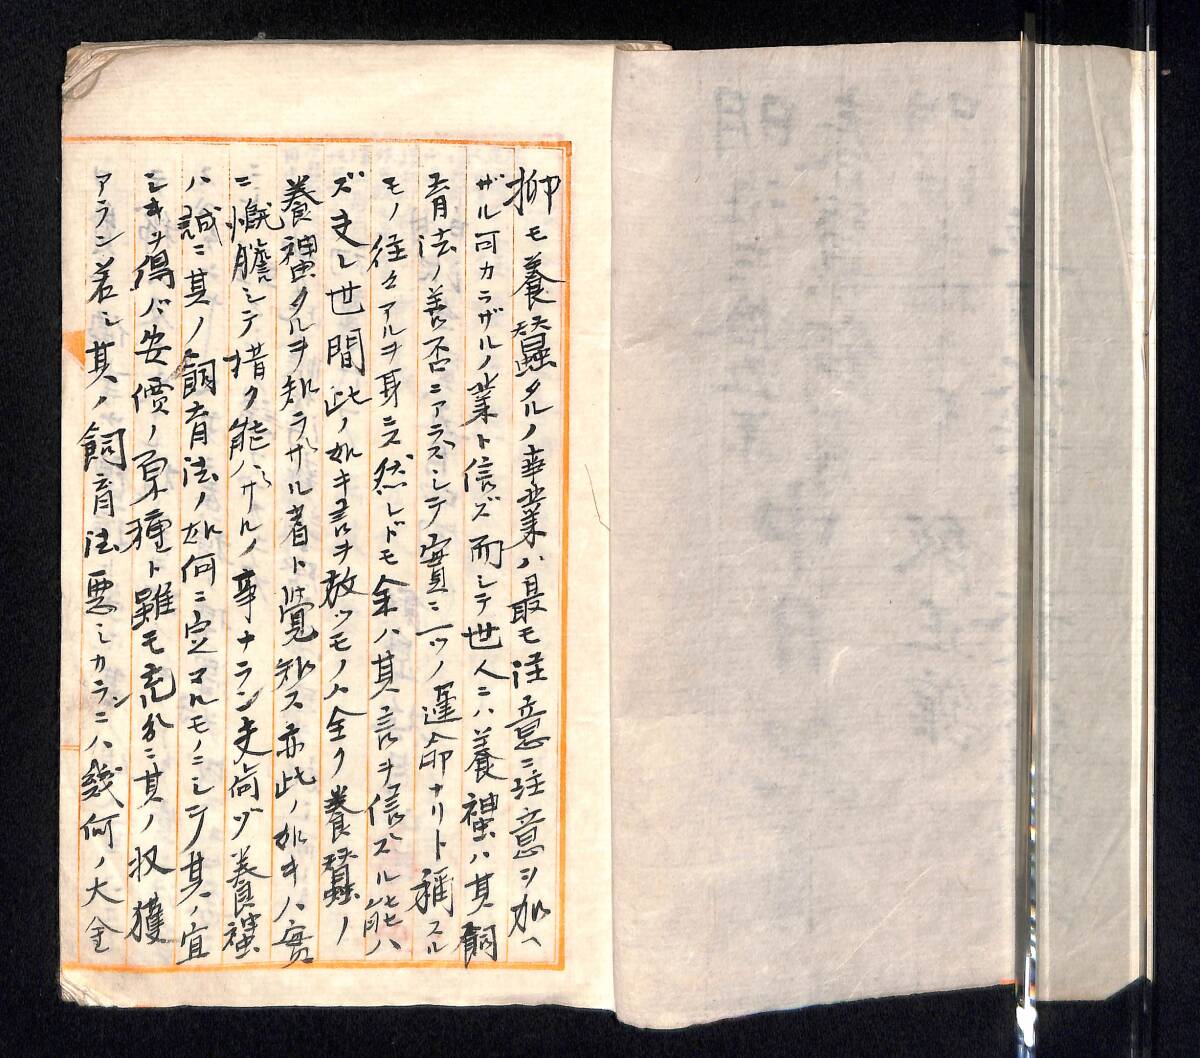 抑モ養蠶タルノ事業ハ最モ注意ニ注意ヲ加ヘ
ザル可カラザルノ業ト信ズ而シテ世人ニハ養蚕ハ其飼
育法ノ善否ニアラズシテ實ニ一ツノ運命ナリト稱スル
モノ徃々アルヲ耳ニス然レドモ余ハ其言ヲ信ズル能ハ
ズ夫レ世間此ノ如キ言ヲ放ツモノハ全ク養蠶ノ
養蚕タルヲ知ラザル者ト覺知ス亦此ノ如キハ實
ニ慨膽シテ措ク能ハザルノ事ナラン夫尚ヅ養蚕
ハ誠ニ其ノ飼育法ノ如何ニ定マルモノニシテ其ノ宜
シキヲ得バ安價ノ原種ト雖モ充分ニ其ノ収獲
アラン若シ其ノ飼育法悪シカランニハ幾何ノ大金